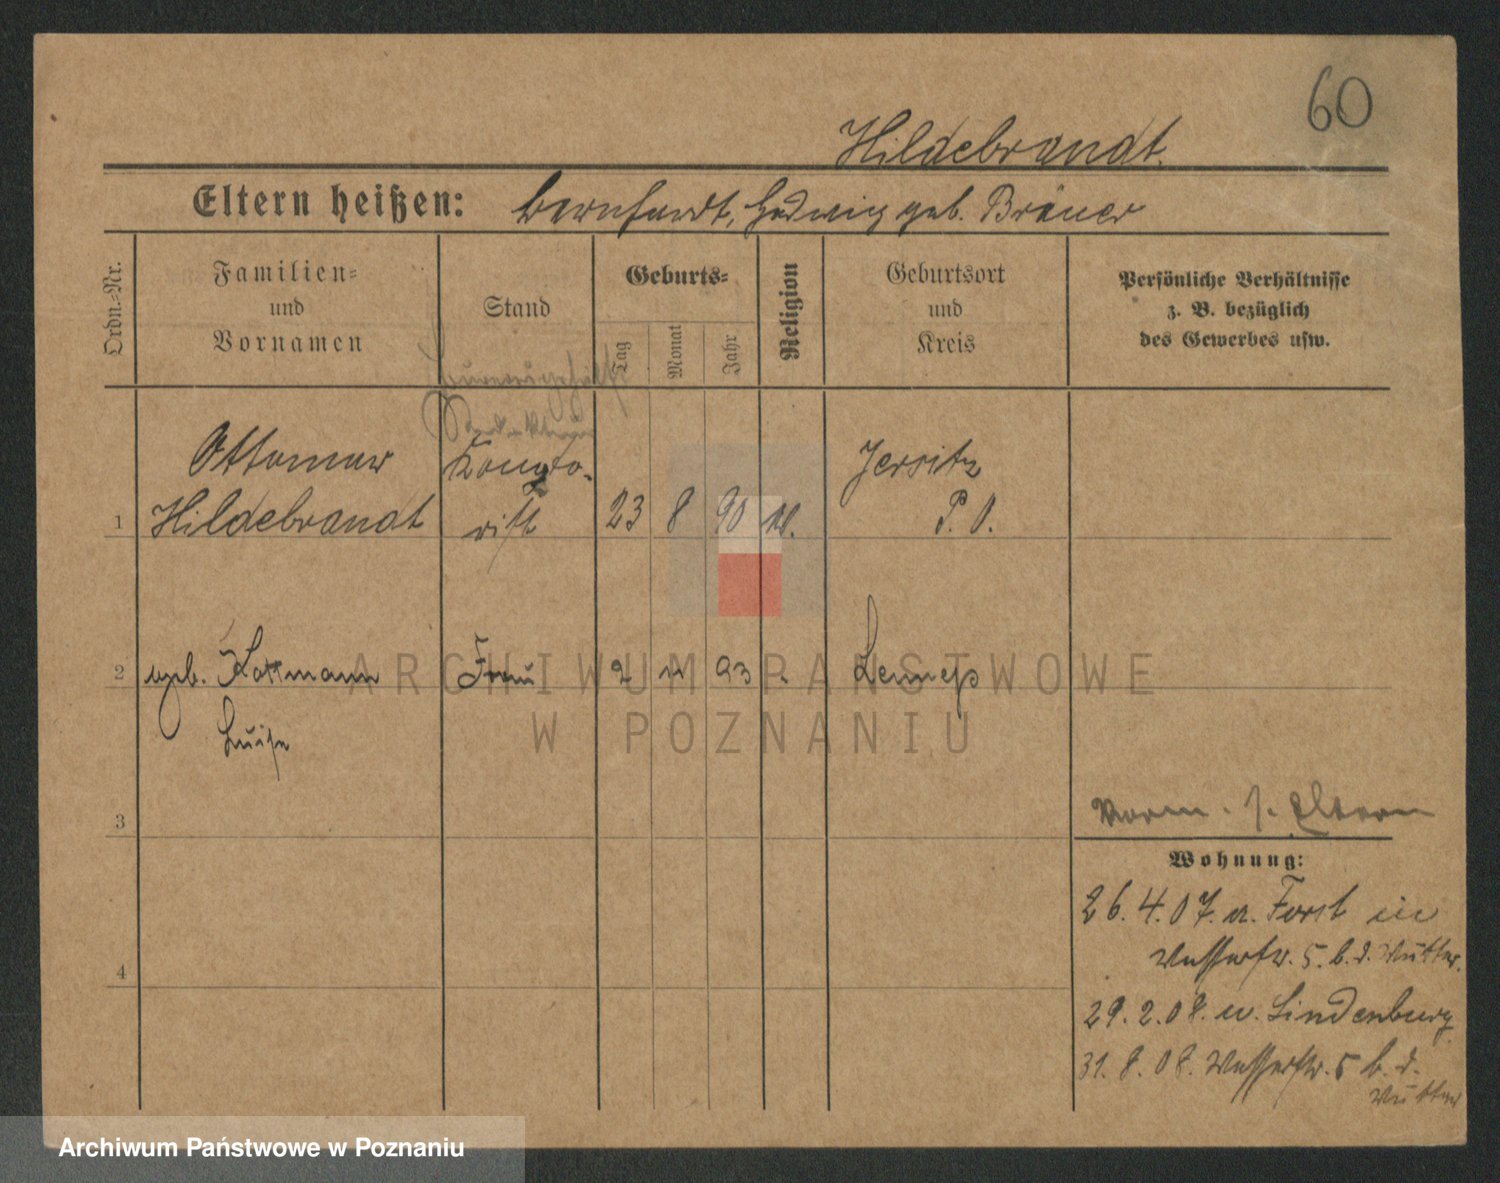 60
Hildebrandt.
Eltern heißen: Bernhardt, Hedwig geb. Bräuer
Ordn.-Nr.
Familien-
und
Vornamen
Stand
Geburts-
Tag
Monat
Jahr
Religion
Geburtsort
und
Kreis
Persönliche Verhältnisse
z. B. bezüglich
des Gewerbes usw.
1 Ottomar Hildebrandt Kontorist 23 8 90 Jersitz P. O.
2 geb. Kottmann Luise Frau 2 93 Lennep
3
4
Vorm. s. Eltern
Wohnung:
26. 4. 07. a. Forst in
Wasserstr. 5. b. d. Mutter.
29. 2. 08. n. Lindenburg
31. 8. 08. Wasserstr. 5 b. d.
Mutter
ARCHIWUM PAŃSTWOWE
W POZNANIU
Archiwum Państwowe w Poznaniu